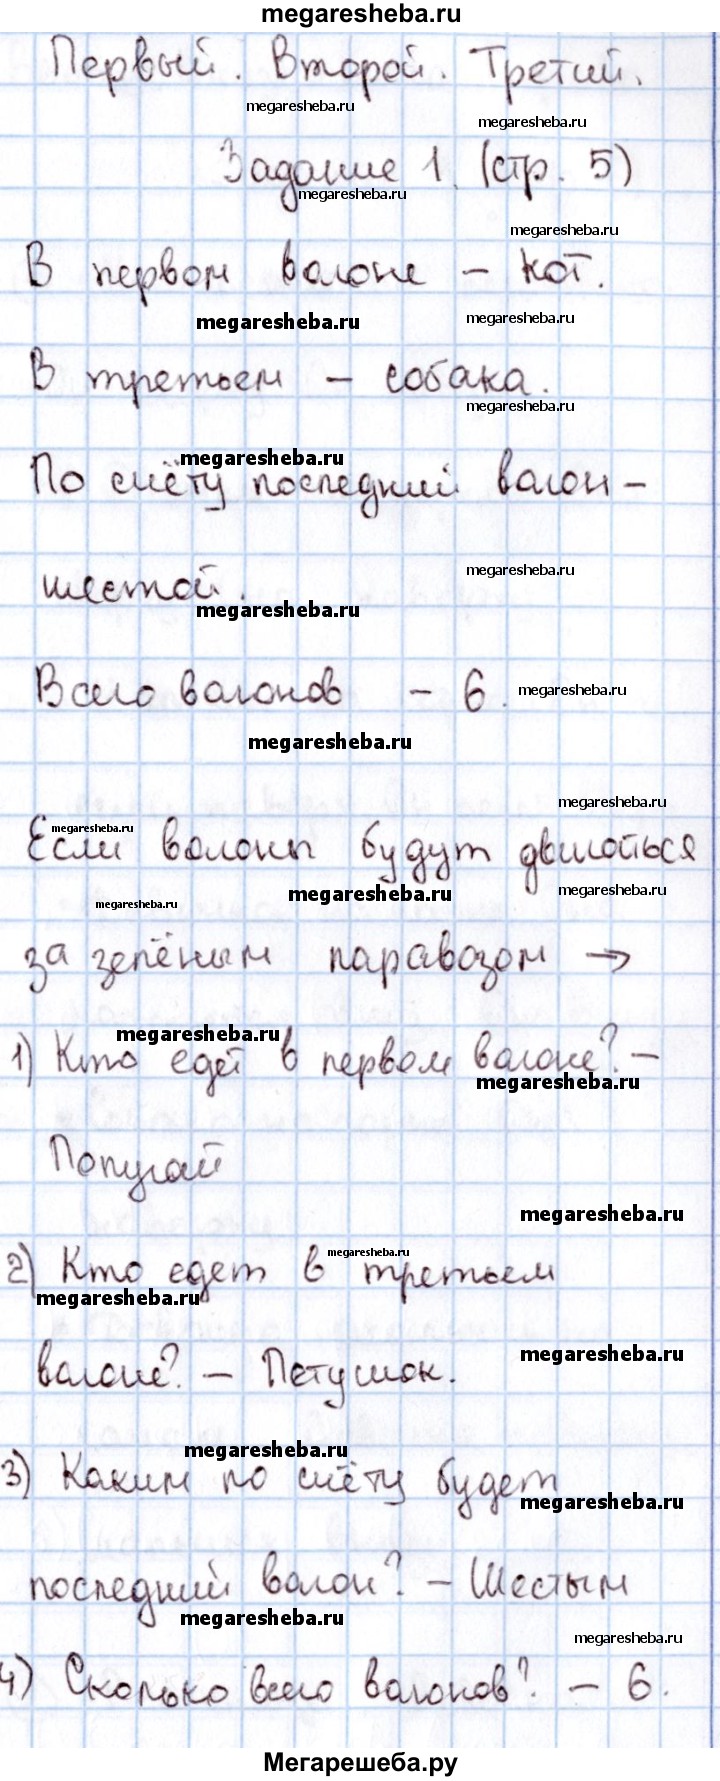 megaresheba.ru
Первый. Второй. Третий.
megaresheba.ru
megaresheba.ru
Задание 1. (стр. 5)
megaresheba.ru
megaresheba.ru
В первом вагоне – кот.
megaresheba.ru
megaresheba.ru
В третьем – собака.
megaresheba.ru
megaresheba.ru
По счёту последний вагон –
megaresheba.ru
шестой.
megaresheba.ru
Всего вагонов – 6.
megaresheba.ru
megaresheba.ru
megaresheba.ru
megaresheba.ru
Если вагоны будут двигаться
megaresheba.ru
megaresheba.ru
megaresheba.ru
за зелёным паравозом →
megaresheba.ru
1) Кто едет в первом вагоне? –
megaresheba.ru
Попугай
megaresheba.ru
megaresheba.ru
2) Кто едет в третьем
megaresheba.ru
вагоне? – Петушок.
megaresheba.ru
megaresheba.ru
3) Каким по счёту будет
megaresheba.ru
последний вагон? – Шестым
megaresheba.ru
megaresheba.ru
4) Сколько всего вагонов? – 6.
Мегарешеба.ру